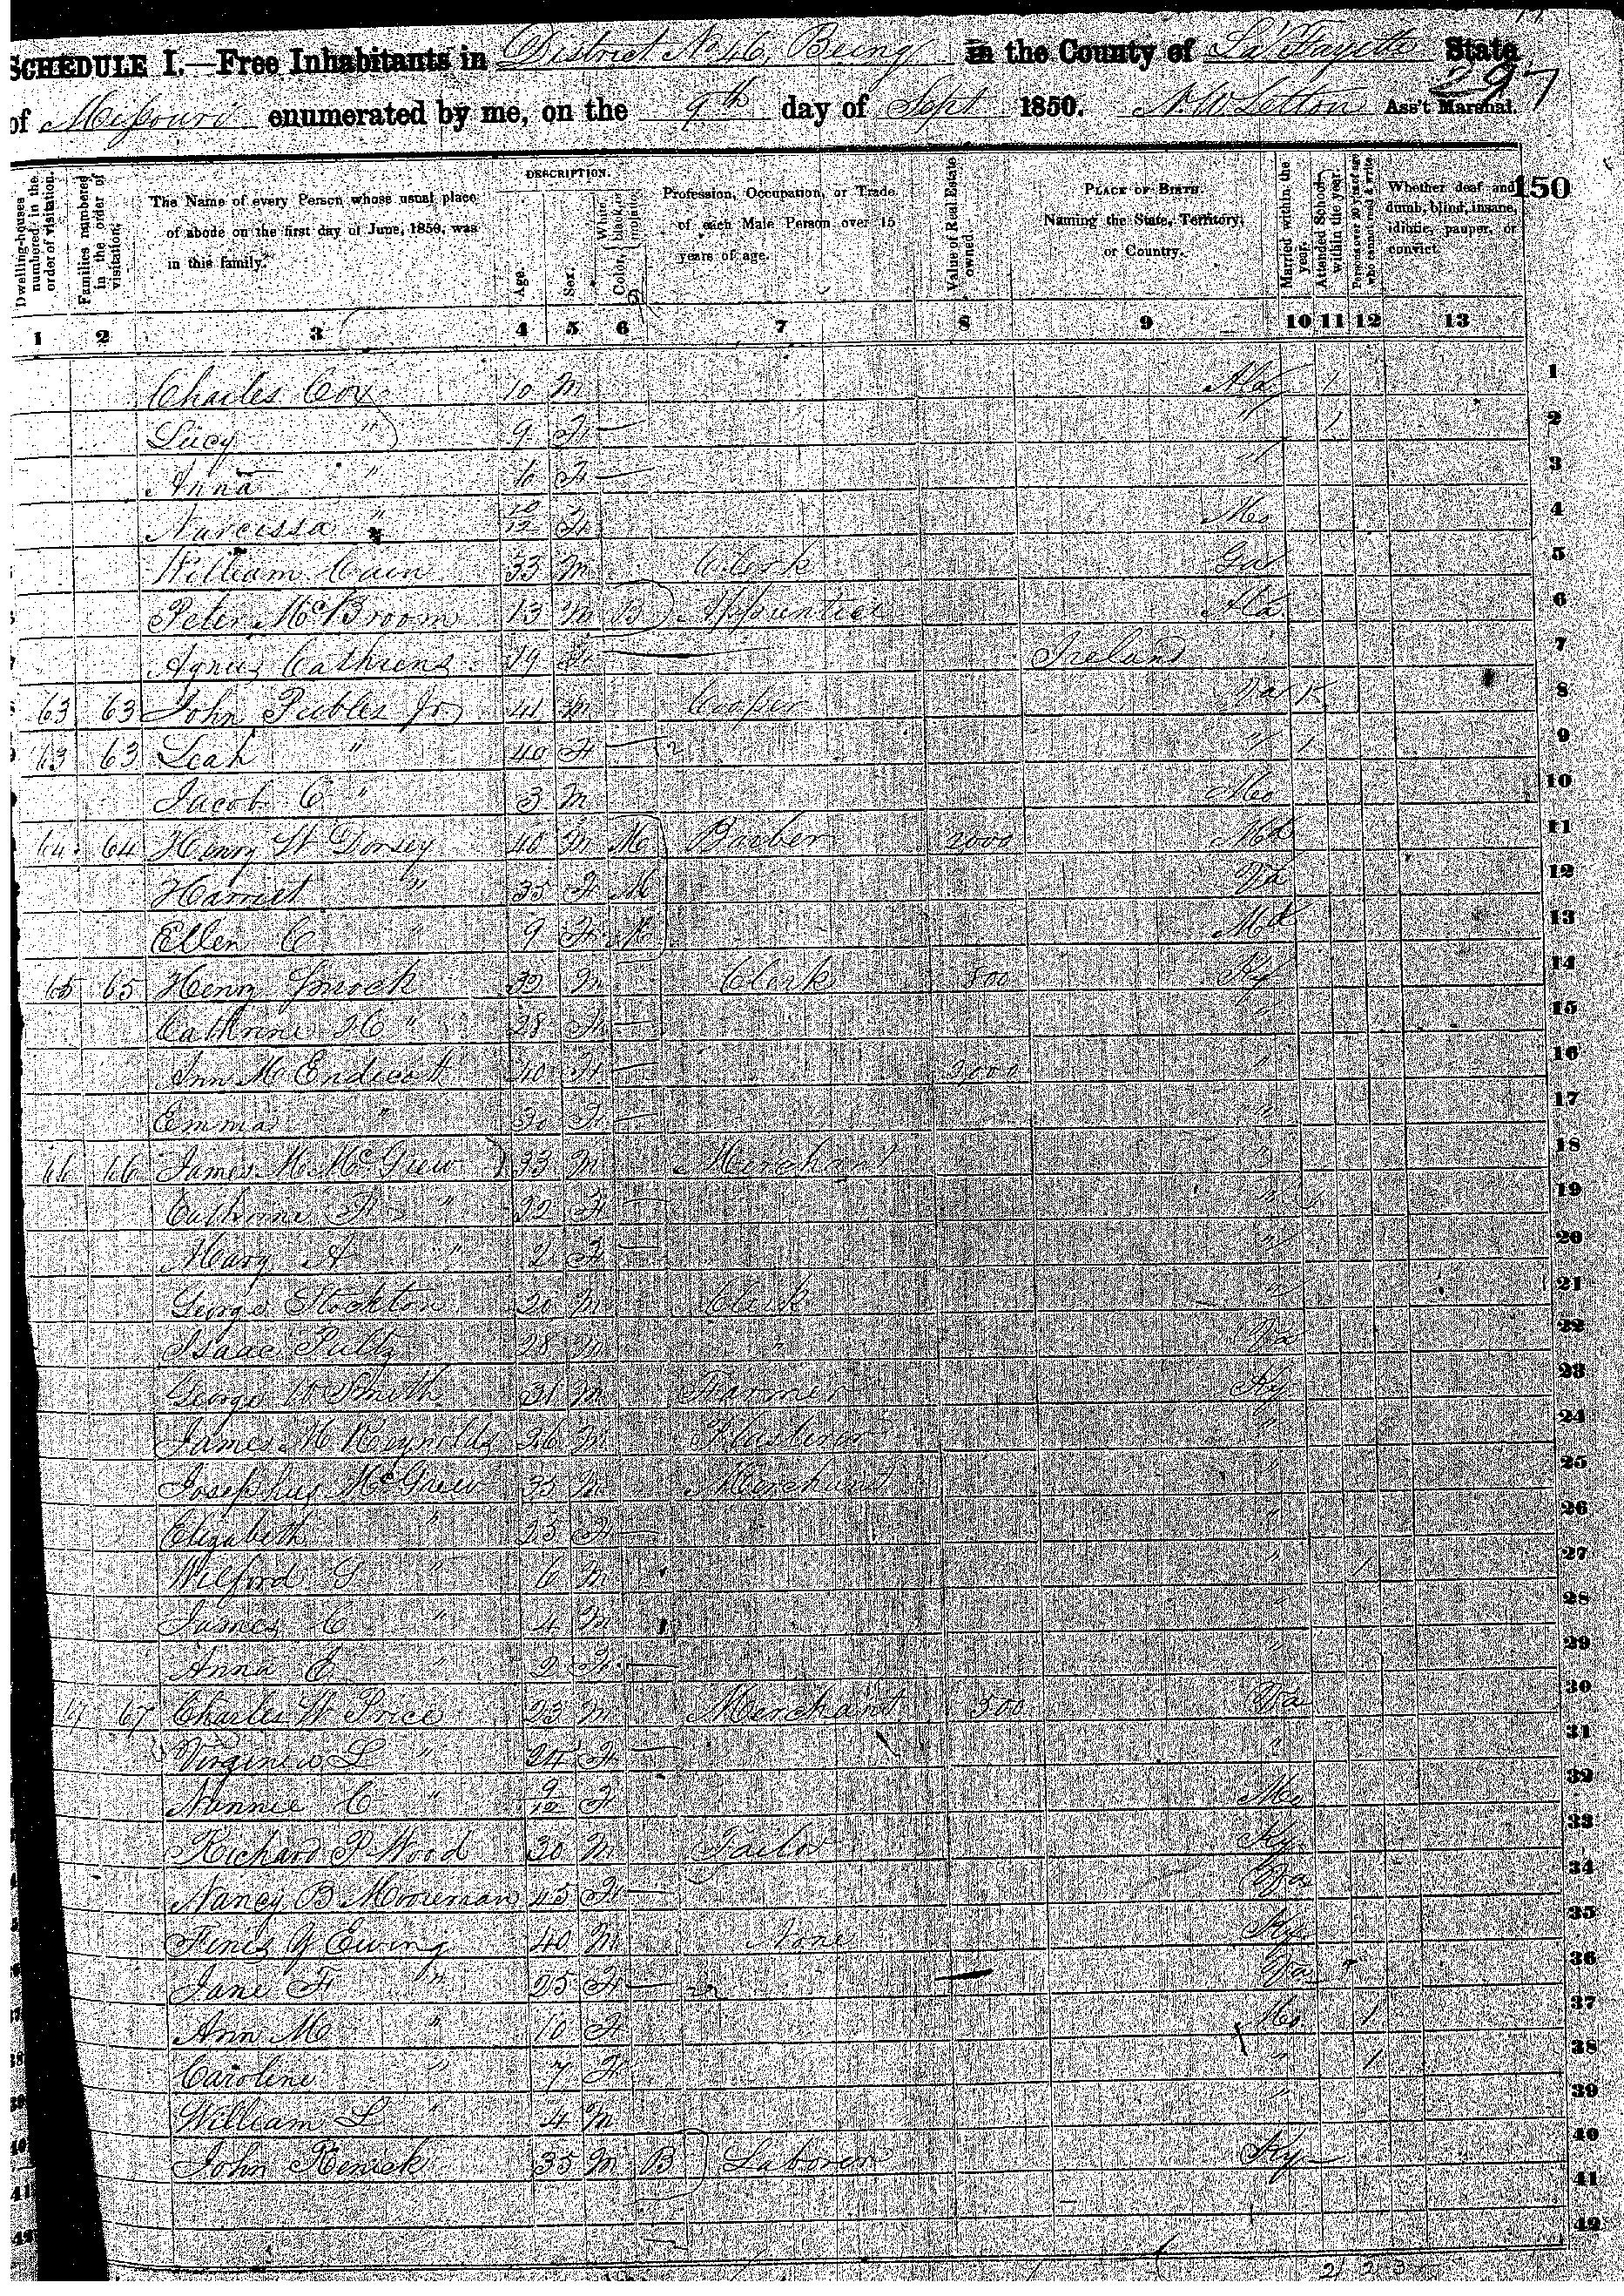 SCHEDULE I.—Free Inhabitants in District No 46, Being in the County of La Fayette State
297
of Missouri enumerated by me, on the 9th day of Sept 1850. Ass't Marshal.
150
Dwelling-houses numbered in the order of visitation.
Families numbered in the order of visitation.
The Name of every Person whose usual place of abode on the first day of June, 1850, was in this family.
DESCRIPTION.
Age.
Sex.
Color, White, black, or mulatto.
Profession, Occupation, or Trade of each Male Person over 15 years of age.
Value of Real Estate owned.
PLACE OF BIRTH. Naming the State, Territory, or Country.
Married within the year.
Attended School within the year.
Persons over 20 y'rs of age who cannot read & write.
Whether deaf and dumb, blind, insane, idiotic, pauper, or convict.
1 2 3 4 5 6 7 8 9 10 11 12 13
Charles Cox 10 M Ala 1 1
Lucy " 9 F " 1 2
Anna " 6 F " 3
Narcissa " 10/12 F Mo 4
William Cain 33 M Clerk 5
Peter McBroom 13 M B Apprentice Ala 6
Agnes Cathrens 19 F Ireland 7
63 63 John Peebles Jr 41 M Cooper Va 8
63 63 Leah " 40 F " 1 9
Jacob C " 3 M Mo 10
64 64 Henry W Dorsey 40 M M Barber 2000 Md 11
Harriet " 35 F M Va 12
Ellen C " 9 F M Md 13
65 65 Henry Smock 32 M Clerk 800 Ky 14
Cathrine " 28 F " 15
Ann M Endicott 40 F " 16
Emma " F " 17
66 66 James M McGrew 33 M Merchant " 18
Catherine F " 22 F " 19
Mary A " 2 F " 20
George Stockton 20 M Clerk " 21
Isaac Pultz 28 M " Va 22
George W Smith 31 M Farmer Ky 23
James M Reynolds 26 M Plasterer " 24
Josephus McGrew 35 M Merchant " 25
Elizabeth " 25 F " 26
Wilford G " 6 M " 1 27
James C " 4 M " 28
Anna E " 2 F " 29
67 67 Charles W Price 23 M Merchant 500 Va 30
Virginia L " 24 F " 31
Nannie C " 9/12 F Mo 32
Richard P Wood 30 M Tailor Ky 33
Nancy B Mooreman 45 F Va 34
Finis Y Ewing 40 M None Ky 35
Jane F " 25 F Va 36
Ann M " 10 F Mo 1 37
Caroline " 7 F " 1 38
William L " 4 M " 39
John Renick 35 M B Laborer Ky 40
41
42